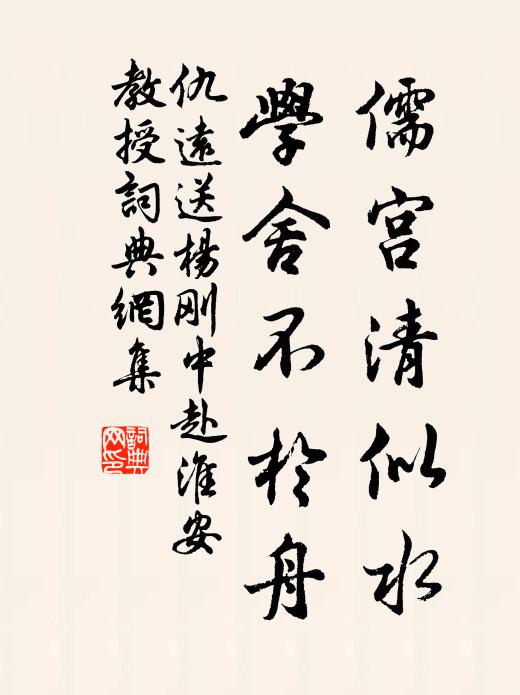 儒宫清似水
學舍不於舟
仇遠送楊刚中赴淮安
教授詞典網集
詞典网印